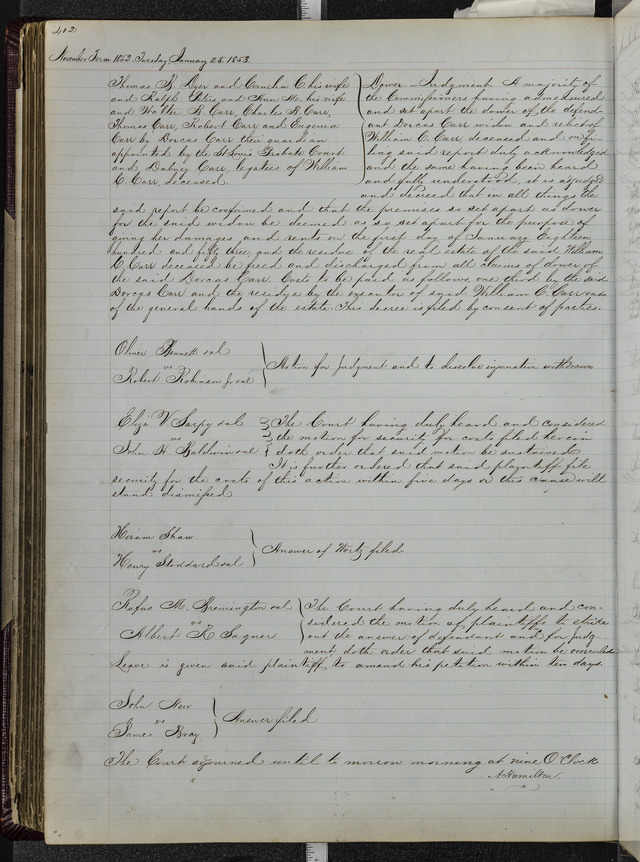 402
November Term 1852. Tuesday January 25. 1853.
Thomas B. Dyer and Cornelia C. his wife
and Ralph Peters and Ann M. his wife
and Walter B. Carr, Charles B. Carr,
Thomas Carr, Robert Carr and Eugenia
Carr by Dorcas Carr their guardian
appointed by the St Louis Probate Court
and Dabney Carr, legatees of William
C. Carr deceased.
Dower - Judgment A majority of
the Commissioners having admeasured
and set apart the dower of the defend-
ant Dorcas Carr widow and relict of
William C. Carr deceased and
said report duly acknowledged
and the same having been heard
and fully understood, it is adjudged
and decreed that in all things the
said report be confirmed and that the premises so set apart as dower
for the said widow be deemed as so set apart for the purpose of
giving her damages and rents on the first day of January Eighteen
hundred and fifty three, and the residue of the real estate of the said William
C. Carr deceased be freed and discharged from all claims of dower of
the said Dorcas Carr. Costs to be paid as follows, one third by the said
Dorcas Carr and the residue by the executor of said William C. Carr out
of the general funds of the estate. This decree is filed by consent of parties.
Oliver Bennett et al
vs
Robert Robinson Jr et al
Motion for judgment and to dissolve injunction withdrawn
Eliza V Sarpy et al
vs
John H Baldwin et al
The Court having duly heard and considered
the motion for security for costs filed herein
doth order that said motion be sustained
It is further ordered that said plaintiff file
security for the costs of this action within five days or this cause will
stand dismissed
Hiram Shaw
vs
Henry Stoddard et al
Answer of Wortz filed
Rufus M. Bremington et al
vs
Albert K
The Court having duly heard and con-
sidered the motion of plaintiffs to strike
out the answer of defendant and for judg-
ment doth order that said motion be overruled
Leave is given said plaintiff to amend his petition within ten days
John How
vs
James Bray
Answer filed
The Court adjourned until to morrow morning at nine O'Clock
A. Hamilton